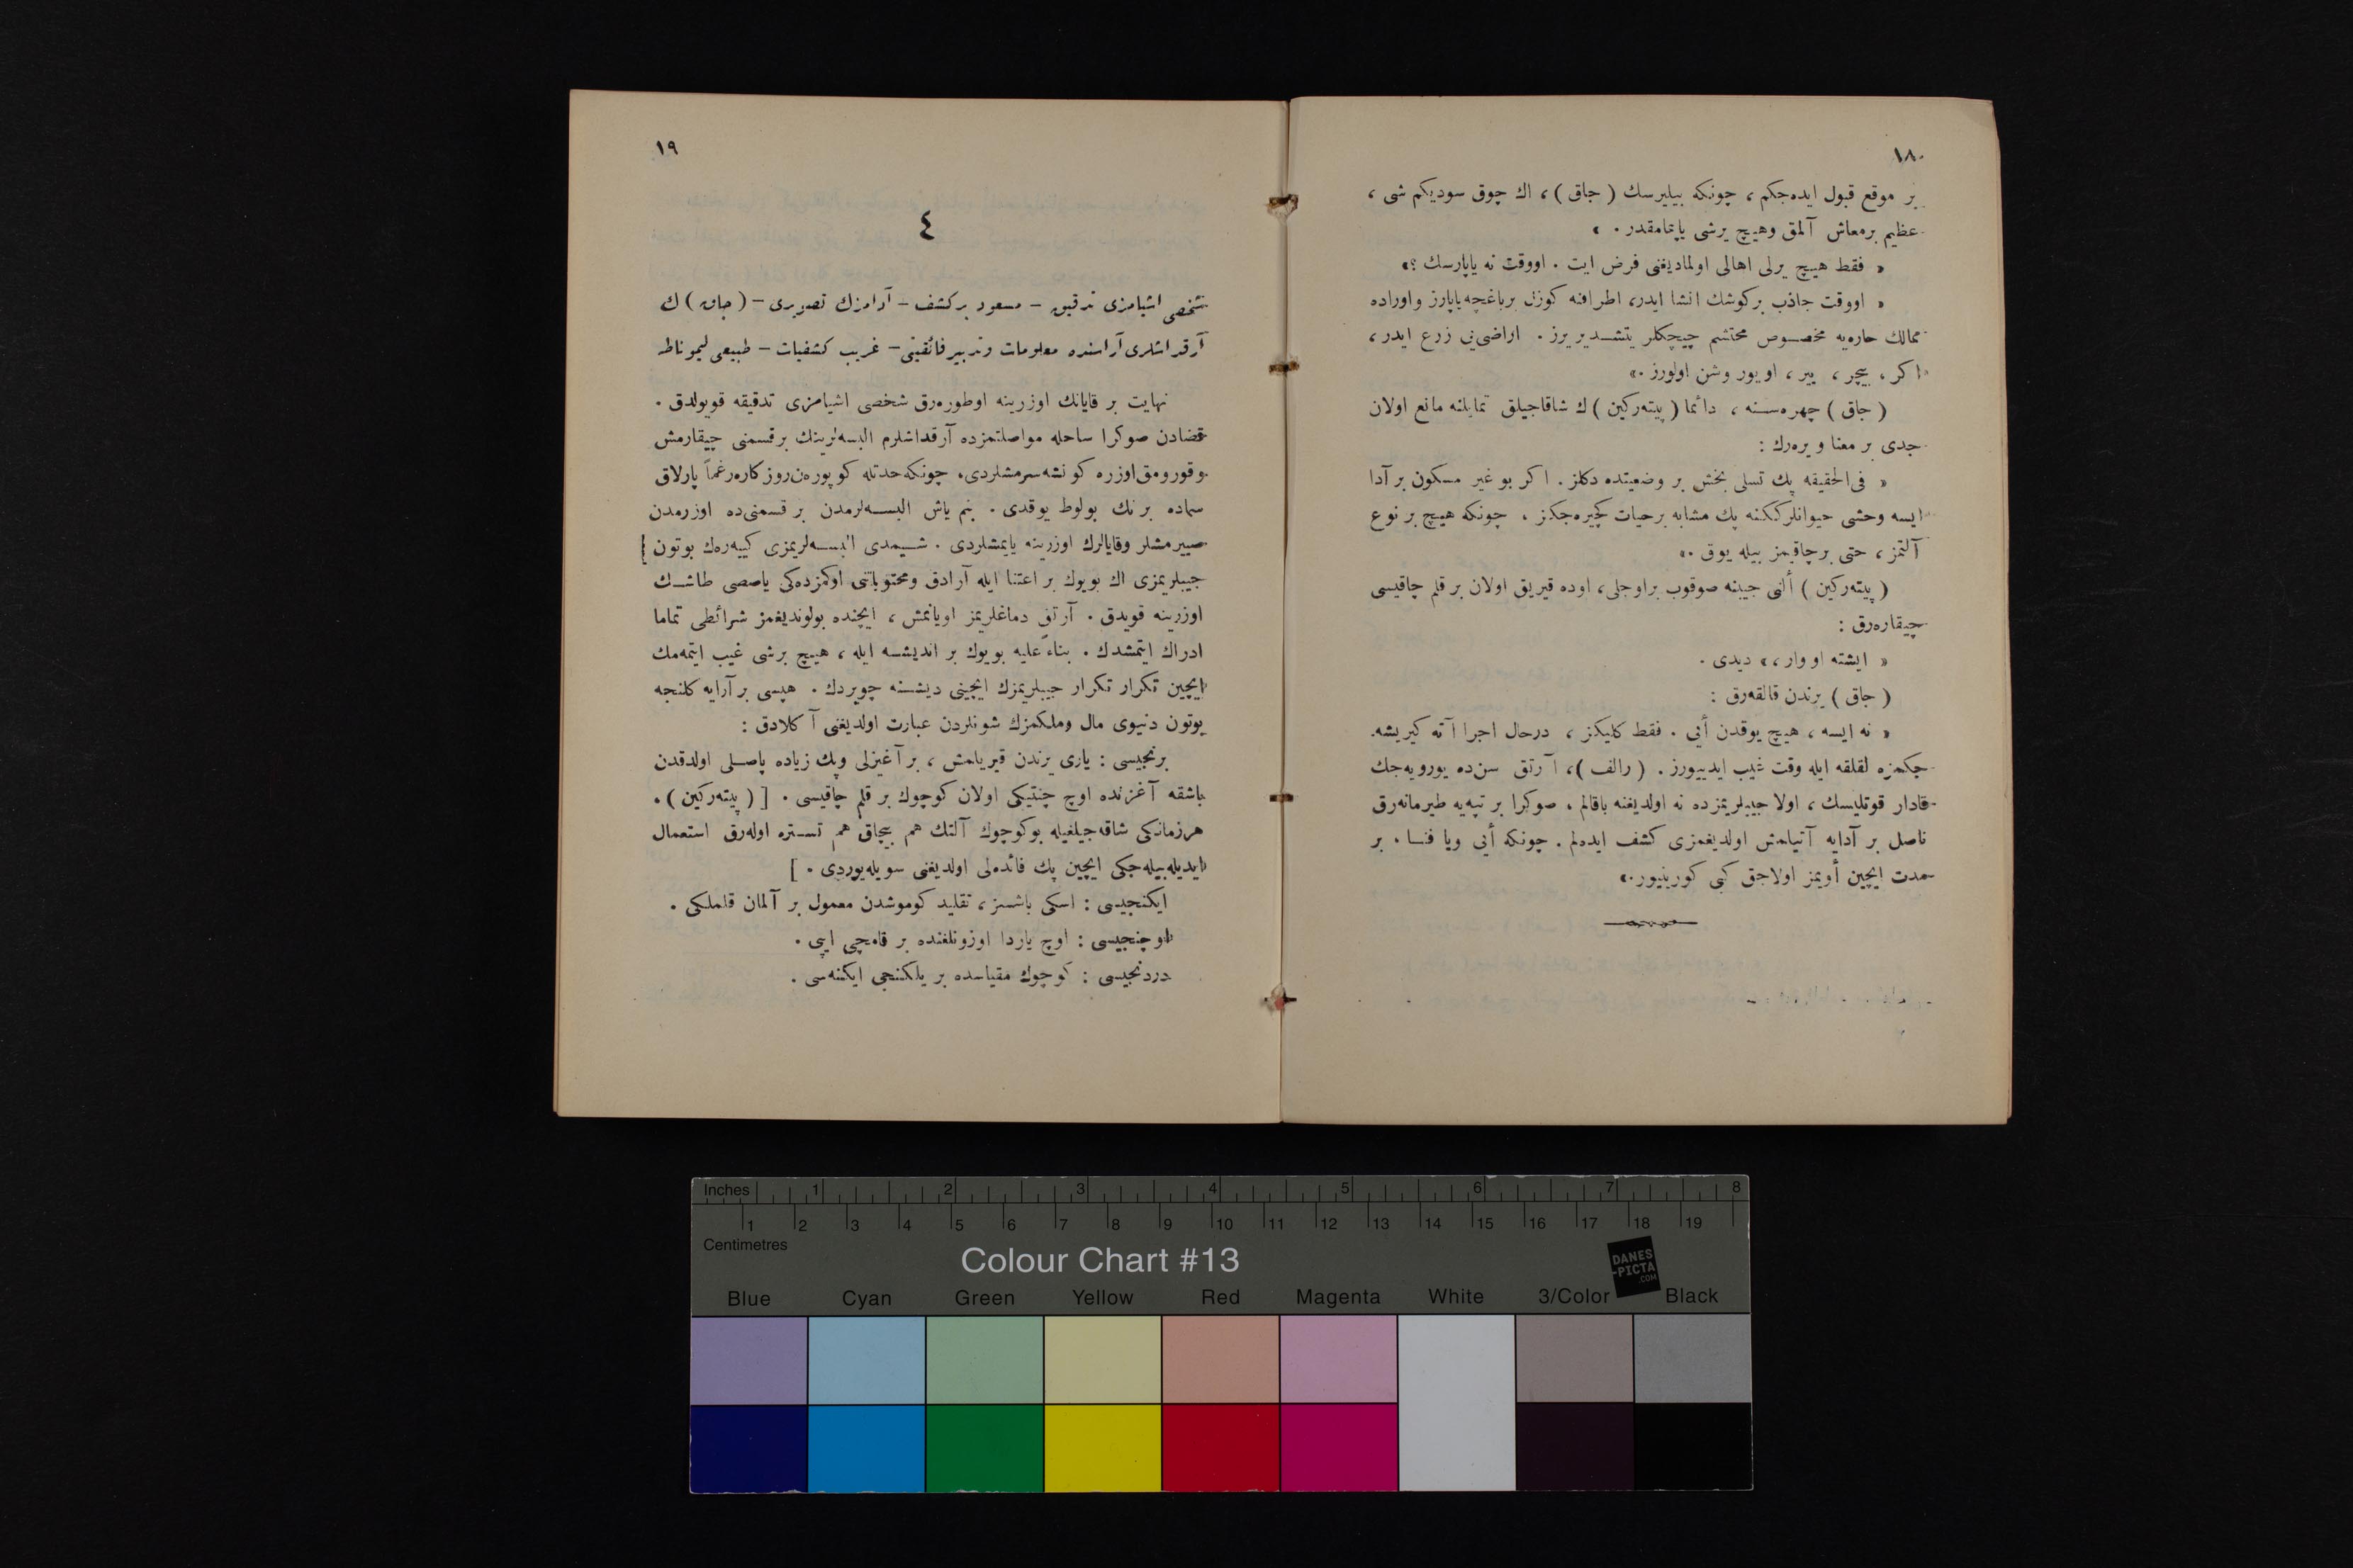 ١٨
بر موقع قبول ایده‌جكم ، چونكه بیلیرسك ( جاق ) ، اك چوق سودیكم شی ،
عظیم برمعاش آلمق وهیچ برشی یاپمامقدر . »
« فقط هیچ یرلی اهالی اولمادیغنی فرض ایت . اووقت نه یاپارسك ؟ »
« اووقت جاذب بركوشك انشا ایدر، اطرافنه كوزل برباغچه یاپارز واوراده
ممالك حاره‌یه مخصوص محتشم چیچكلر یتشدیریرز . اراضی‌یی زرع ایدر ،
اكر ، بیچر ، ییر ، اویور وشن اولورز .»
( جاق ) چهره‌سنه ، دائما ( پیته‌ركین ) ك شاقاجیلق تمایلنه مانع اولان
جدی بر معنا ویره‌رك :
« فی‌الحقیقه پك تسلی بخش بر وضعیتده دكلز . اكر بو غیر مسكون بر آدا
ایسه وحشی حیوانلرككنه پك مشابه برحیات كچیره‌جكز ، چونكه هیچ بر نوع
آلتمز ، حتی برچاقیمز بیله یوق .»
( پیته‌ركین ) ألنی جیبنه صوقوب براوجلی، اوده قیریق اولان بر قلم چاقیسی
چیقاره‌رق :
« ایشته او وار ،» دیدی .
( جاق ) یرندن قالقه‌رق :
« نه ایسه ، هیچ یوقدن أیی . فقط كلیكز ، درحال اجراآته كیریشه‌
جكمزه لقلقه ایله وقت غیب ایدییورز . ( رالف ) ، آرتق سن‌ده یورویه‌جك
قادار قوتلیسك ، اولا جیبلریمزده نه اولدیغنه باقالم ، صوكرا بر تپه‌یه طیرمانه‌رق
ناصل بر آدایه آتیلمش اولدیغمزی كشف ایده‌لم . چونكه أیی ویا فنا ، بر
مدت ایچین أویمز اولاجق كبی كورینیور.»
١٩
٤
شخصی اشیامزی تدقیق – مسعود بركشف – آدامزك تصویری – ( جاق ) ك
آرقداشلری آراسنده معلومات وتدبیر فائقیتی – غریب كشفیات – طبیعی لیموناطه
نهایت بر قایانك اوزرینه اوطوره‌رق شخصی اشیامزی تدقیقه قویولدق .
قضادن صوكرا ساحله مواصلتمزده آرقداشلرم البسه‌لرینك برقسمنی چیقارمش
وقورومق اوزره كونشه سرمشلردی، چونكه حدتله كوپوره‌ن روزكاره رغماً پارلاق
سماده برتك بولوط یوقدی . بنم یاش البسه‌لرمدن بر قسمنی‌ده اوزرمدن
صییرمشلر وقایالرك اوزرینه یایمشلردی . شیمدی البسه‌لریمزی كییه‌رك بوتون
جیبلریمزی اك بویوك بر اعتنا ایله آرادق ومحتویاتنی اوكمزده‌كی یاصصی طاشك
اوزرینه قویدق . آرتق دماغلریمز اویانمش ، ایچنده بولوندیغمز شرائطی تماما
ادراك ایتمشدك . بناءً علیه بویوك بر اندیشه ایله ، هیچ برشی غیب ایتمه‌مك
ایچین تكرار تكرار جیبلریمزك ایچینی دیشنه چویردك . هپسی بر آرایه كلنجه
بوتون دنیوی مال وملكمزك شونلردن عبارت اولدیغنی آكلادق :
برنجیسی : یاری یرندن قیریلمش ، بر آغیزلی وپك زیاده پاصلی اولدقدن
باشقه آغزنده اوچ چنتیكی اولان كوچوك بر قلم چاقیسی . [ ( پیته‌ركین ) ،
هرزمانكی شاقه‌جیلغیله بوكوچوك آلتك هم بیچاق هم تستره اوله‌رق استعمال
ایدیله‌بیله‌جكی ایچین پك فائده‌لی اولدیغنی سویله‌یوردی . ]
ایكنجیسی : اسكی باشسز ، تقلید كوموشدن معمول بر آلمان قلملكی .
اوچنجیسی : اوچ یاردا اوزونلغنده بر قامچی ایپی .
دردنجیسی : كوچوك مقیاسده بر یلكنجی ایكنه‌سی .
Inches 1 2 3 4 5 6 7 8
1 2 3 4 5 6 7 8 9 10 11 12 13 14 15 16 17 18 19
Centimetres
Colour Chart #13
DANES
-PICTA
.COM
Blue Cyan Green Yellow Red Magenta White 3/Color Black